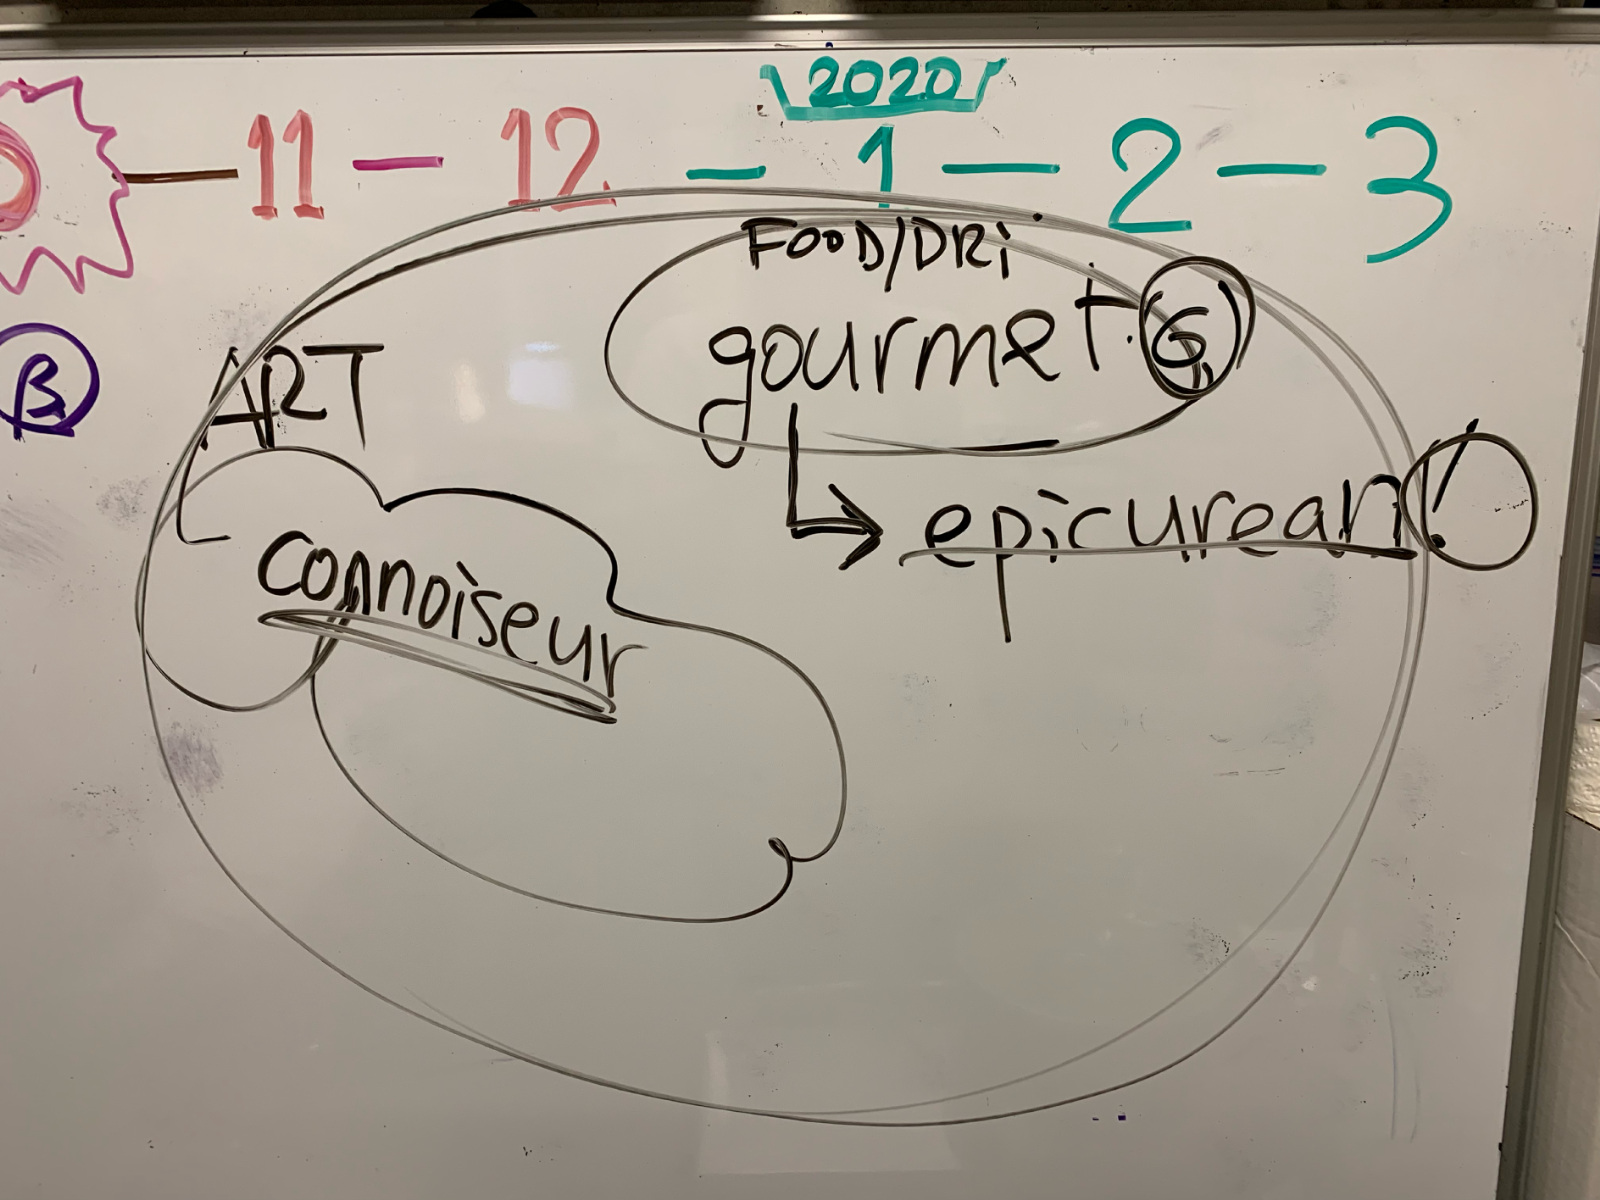 2020
— 11 — 12 — 1 — 2 — 3
FOOD/DRi
gourmet. G
B
ART
epicurean!
connoiseur